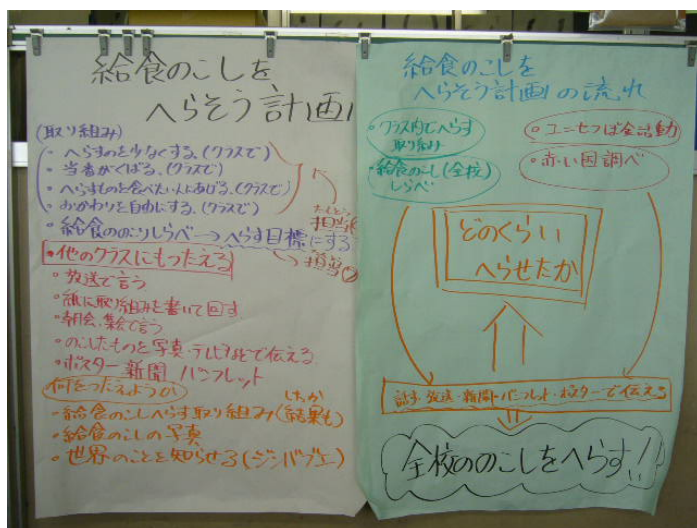 給食のこしを
へらそう計画
(取り組み)
・へらすのを少なくする。(クラスで)
・当番がくばる。(クラスで)
・へらすものを食べたい人にあげる。(クラスで)
・おかわりを自由にする。(クラスで)
・給食ののこりしらべ→へらす目標にする
担当
担当
・他のクラスにもつたえる
・放送で言う
・紙に取り組みを書いて回す
・朝会・集会で言う
・のこしたものを写真・テレビなどで伝える
・ポスター 新聞 パンフレット
何をつたえようか
・給食のこしへらす取り組み(結果も)
けっか
・給食のこしの写真
・世界のことを知らせる(ジンバブエ)
給食のこしを
へらそう計画の流れ
・クラス内でへらす
取り組み
・給食のこし(全校)
しらべ
・ユニセフぼ金活動
・赤い国調べ
どのくらい
へらせたか
話す・放送・新聞・パンフレット・ポスターで伝える
全校ののこしをへらす!!